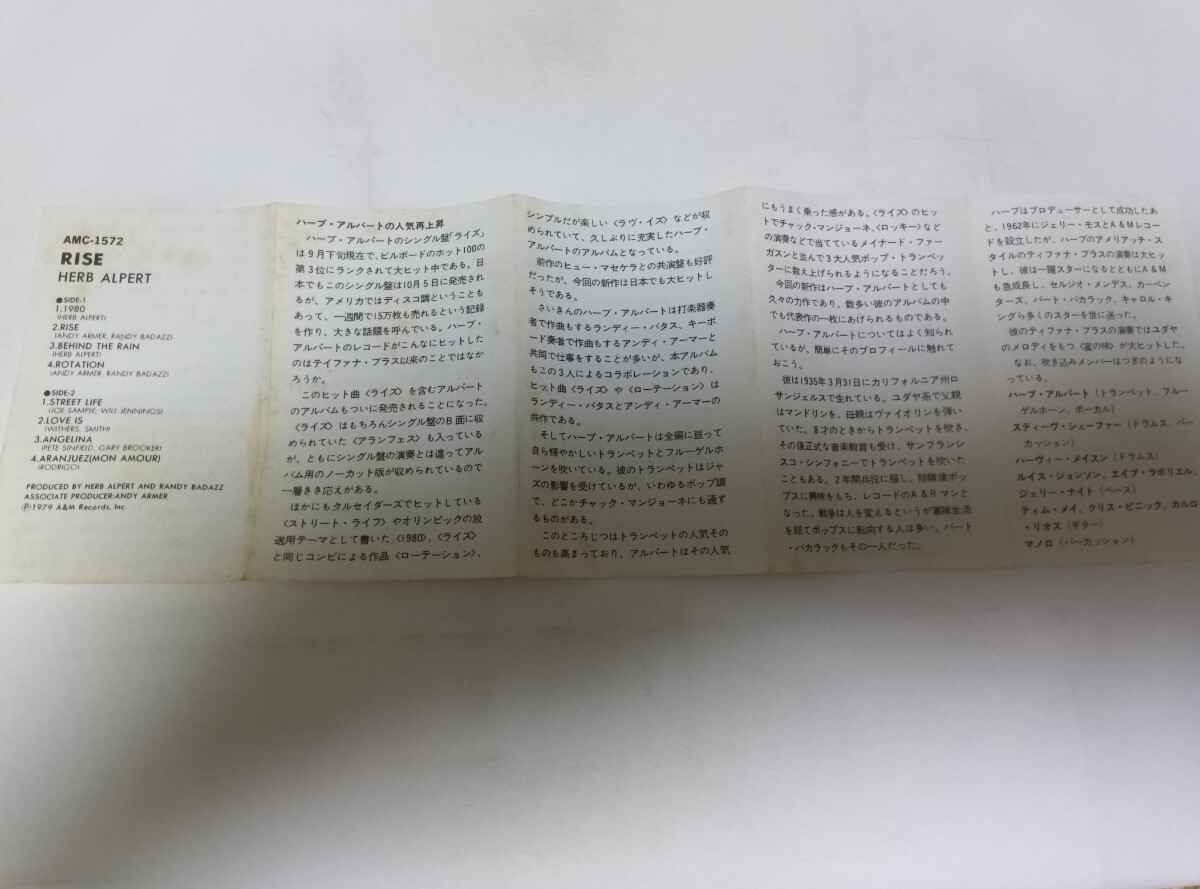 AMC-1572
RISE
HERB ALPERT
●SIDE-1
1.1980
(HERB ALPERT)
2.RISE
(ANDY ARMER, RANDY BADAZZ)
3.BEHIND THE RAIN
(HERB ALPERT)
4.ROTATION
(ANDY ARMER, RANDY BADAZZ)
●SIDE-2
1.STREET LIFE
(JOE SAMPLE, WILL JENNINGS)
2.LOVE IS
(WITHERS, SMITH)
3.ANGELINA
(PETE SINFIELD, GARY BROOKER)
4.ARANJUEZ(MON AMOUR)
(RODRIGO)
PRODUCED BY HERB ALPERT AND RANDY BADAZZ
ASSOCIATE PRODUCER:ANDY ARMER
Ⓟ1979 A&M Records, Inc.
ハーブ・アルパートの人気再上昇
ハーブ・アルパートのシングル盤「ライズ」
は9月下旬現在で、ビルボードのホット100の
第3位にランクされて大ヒット中である。日
本でもこのシングル盤は10月5日に発売され
るが、アメリカではディスコ調ということも
あって、一週間で15万枚も売れるという記録
を作り、大きな話題を呼んでいる。ハーブ・
アルパートのレコードがこんなにヒットした
のはテイファナ・ブラス以来のことではなか
ろうか。
このヒット曲〈ライズ〉を含むアルパート
のアルバムもついに発売されることになった。
〈ライズ〉はもちろんシングル盤のB面に収
められていた〈アランフェス〉も入っている
が、ともにシングル盤の演奏とは違ってアル
バム用のノーカット版が収められているので
一層きき応えがある。
ほかにもクルセイダーズでヒットしている
〈ストリート・ライフ〉やオリンピックの放
送用テーマとして書いた〈1980〉、〈ライズ〉
と同じコンビによる作品〈ローテーション〉、
シンプルだが楽しい〈ラヴ・イズ〉などが収
められていて、久しぶりに充実したハーブ・
アルパートのアルバムとなっている。
前作のヒュー・マセケラとの共演盤も好評
だったが、今回の新作は日本でも大ヒットし
そうである。
さいきんのハーブ・アルパートは打楽器奏
者で作曲もするランディー・バタス、キーボ
ード奏者で作曲もするアンディ・アーマーと
共同で仕事をすることが多いが、本アルバム
もこの3人によるコラボレーションであり、
ヒット曲〈ライズ〉や〈ローテーション〉は
ランディー・バタスとアンディ・アーマーの
共作である。
そしてハーブ・アルパートは全編に亘って
自ら輝やかしいトランペットとフルーゲルホ
ーンを吹いている。彼のトランペットはジャ
ズの影響を受けているが、いわゆるポップ調
で、どこかチャック・マンジョーネにも通ず
るものがある。
このところじつはトランペットの人気その
ものも高まっており、アルパートはその人気
にもうまく乗った感がある。〈ライズ〉のヒッ
トでチャック・マンジョーネ、〈ロッキー〉など
の演奏などで当てているメイナード・ファー
ガスンと並んで3大人気ポップ・トランペッ
ターに数え上げられるようになることだろう。
今回の新作はハーブ・アルパートとしても
久々の力作であり、数多い彼のアルバムの中
でも代表作の一枚にあげられるものである。
ハーブ・アルパートについてはよく知られ
ているが、簡単にそのプロフィールに触れて
おこう。
彼は1935年3月31日にカリフォルニア州ロ
サンジェルスで生れている。ユダヤ系で父親
はマンドリンを、母親はヴァイオリンを弾い
ていた。8才のときからトランペットを吹き、
その後正式な音楽教育も受け、サンフランシ
スコ・シンフォニーでトランペットを吹いた
こともある。2年間兵役に服し、除隊後ポッ
プスに興味をもち、レコードのA&Rマンと
なった。戦争は人を変えるというが軍隊生活
を経てポップスに転向する人は多い。バート
・バカラックもその一人だった。
ハーブはプロデューサーとして成功したあ
と、1962年にジェリー・モスとA&Mレコー
ドを設立したが、ハーブのアメリアッチ・ス
タイルのティファナ・ブラスの演奏は大ヒッ
トし、彼は一躍スターになるとともにA&M
も急成長し、セルジオ・メンデス、カーペン
ターズ、バート・バカラック、キャロル・キ
ングら多くのスターを世に送った。
彼のティファナ・ブラスの演奏ではユダヤ
のメロディをもつ《蜜の味》が大ヒットした。
なお、吹き込みメンバーはつぎのようにな
っている。
ハーブ・アルパート(トランペット、フルー
ゲルホーン、ボーカル)
スティーヴ・シェーファー(ドラムス、パー
カッション)
ハーヴィー・メイスン(ドラムス)
ルイス・ジョンソン、エイブ・ラボリエル、
ジェリー・ナイト(ベース)
ティム・メイ、クリス・ピニック、カルロ
・リオス(ギター)
マノロ(パーカッション)